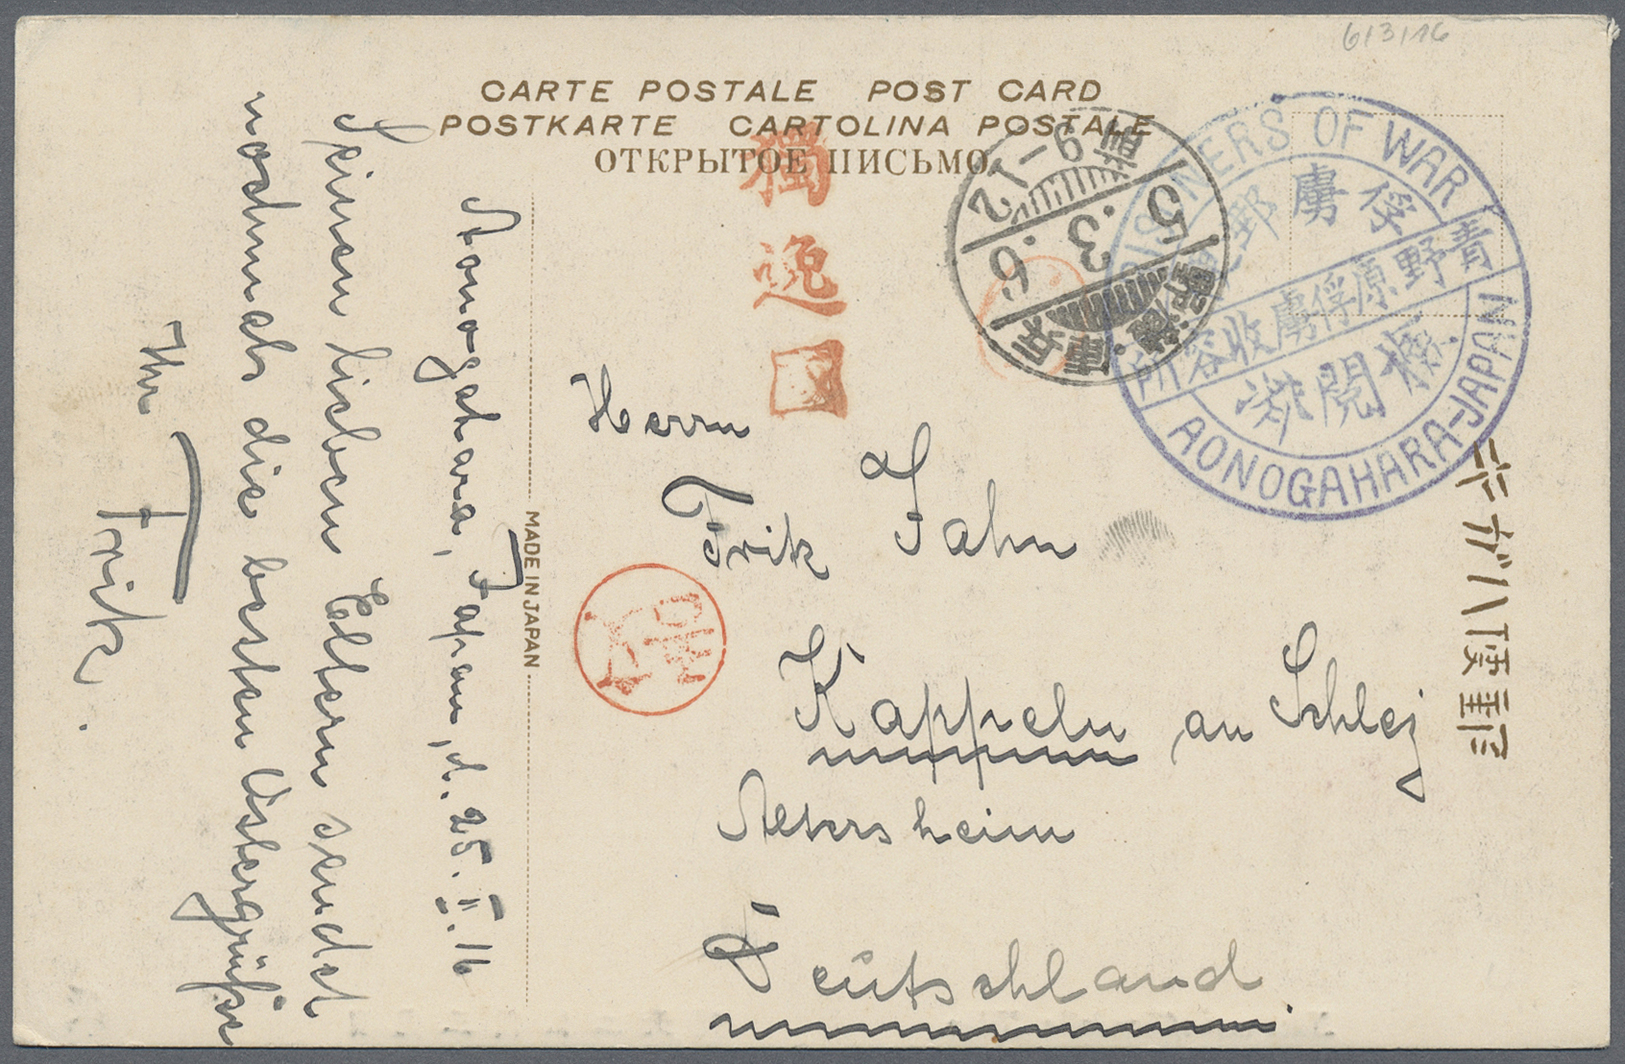 6/3/16
CARTE POSTALE POST CARD
POSTKARTE CARTOLINA POSTALE
ОТКРЫТОЕ ПИСЬМО
獨逸國
PRISONERS OF WAR
俘虜郵便
青野原俘虜收容所
檢閲濟
AONOGAHARA-JAPAN
兵庫
5.3.6
前9-12
郵便はがき
MADE IN JAPAN
Herrn
Frik Jahn
Kappeln an Schlei
Altersheim
Deutschland.
Aonogahara, Japan, d. 25. II. 16
Seinen lieben Eltern sendet
nochmals die besten Ostergrüße
Ihr
Frik.